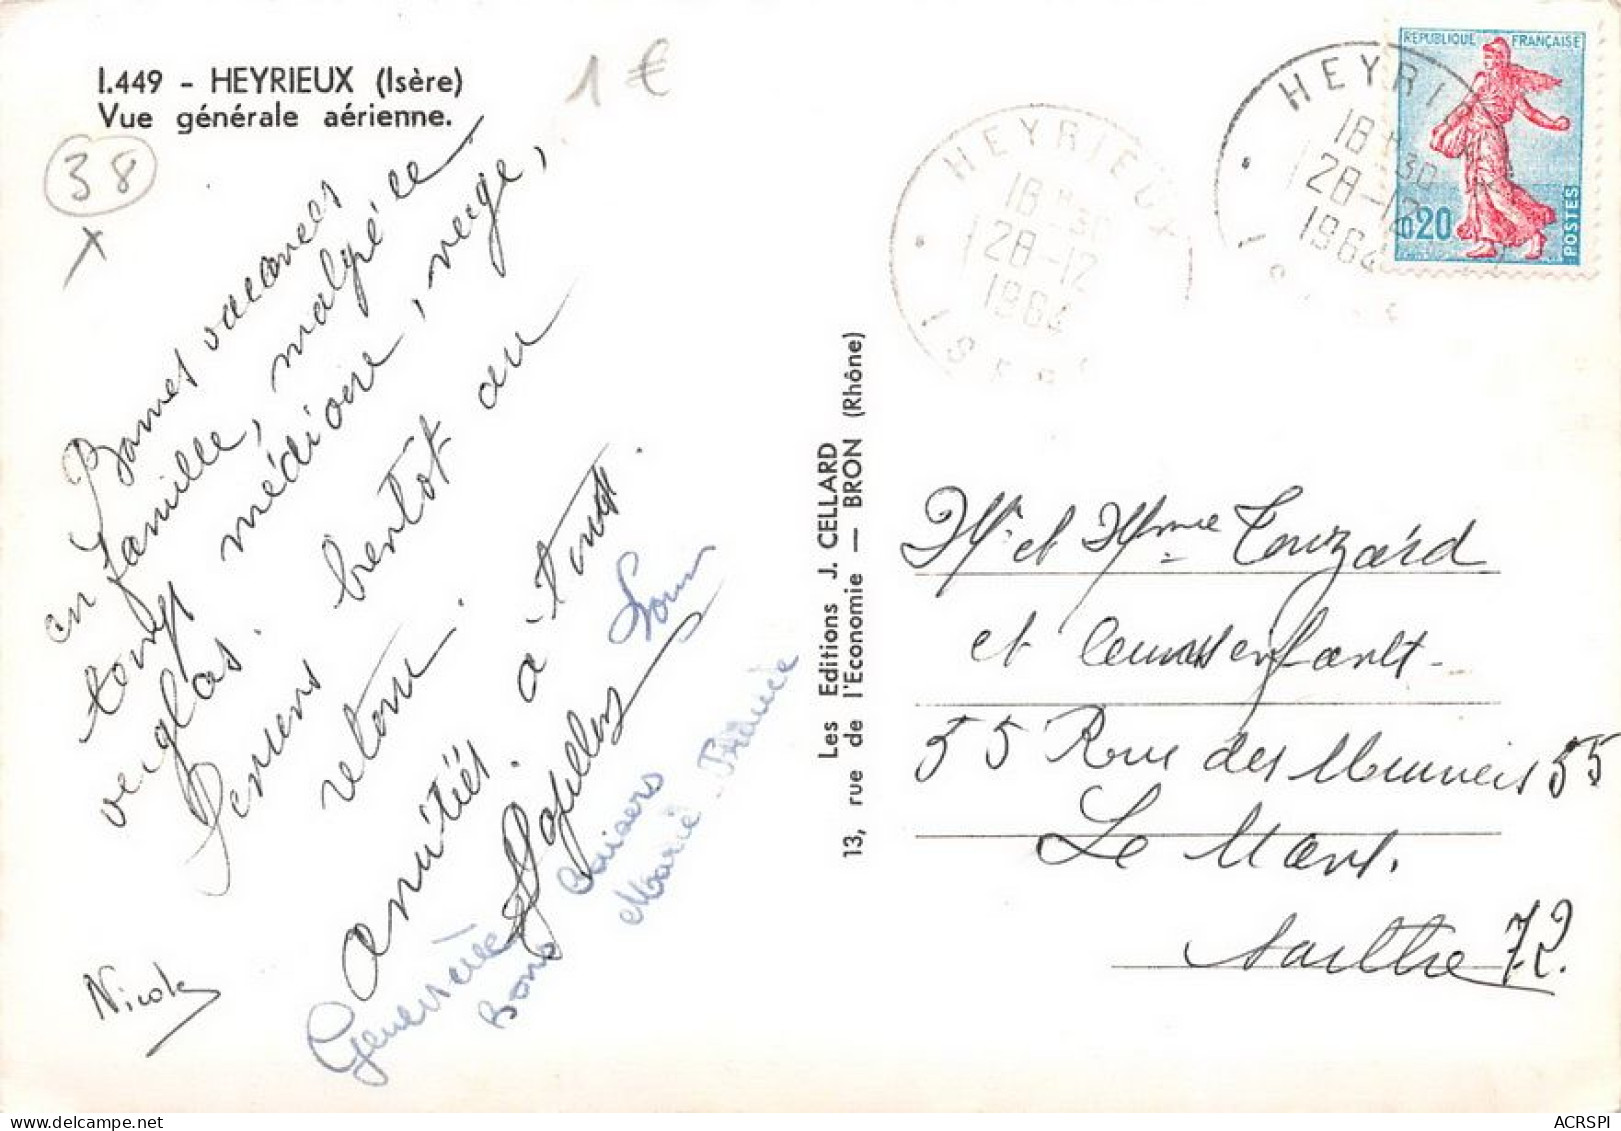 I.449 - HEYRIEUX (Isère)
Vue générale aérienne.
1 €
38
x
Bonnes vacances
en famille, malgré ce
temps médiocre, neige,
verglas. Pensons bientôt au
retour.
amitiés à tous.
Nicole
Geneviève
Bons baisers
Marie-France
Les Editions J. CELLARD
13, rue de l'Economie — BRON (Rhône)
HEYRIEUX
18 H 30
28-12
1964
ISERE
HEYRI
18 H 30
28-12
1964
REPUBLIQUE FRANÇAISE
0,20
POSTES
Mr et Mme Touzard
et leurs enfants
55 Rue des 55
Le Mans.
Sarthe 72.
delcampe.net
ACRSPI